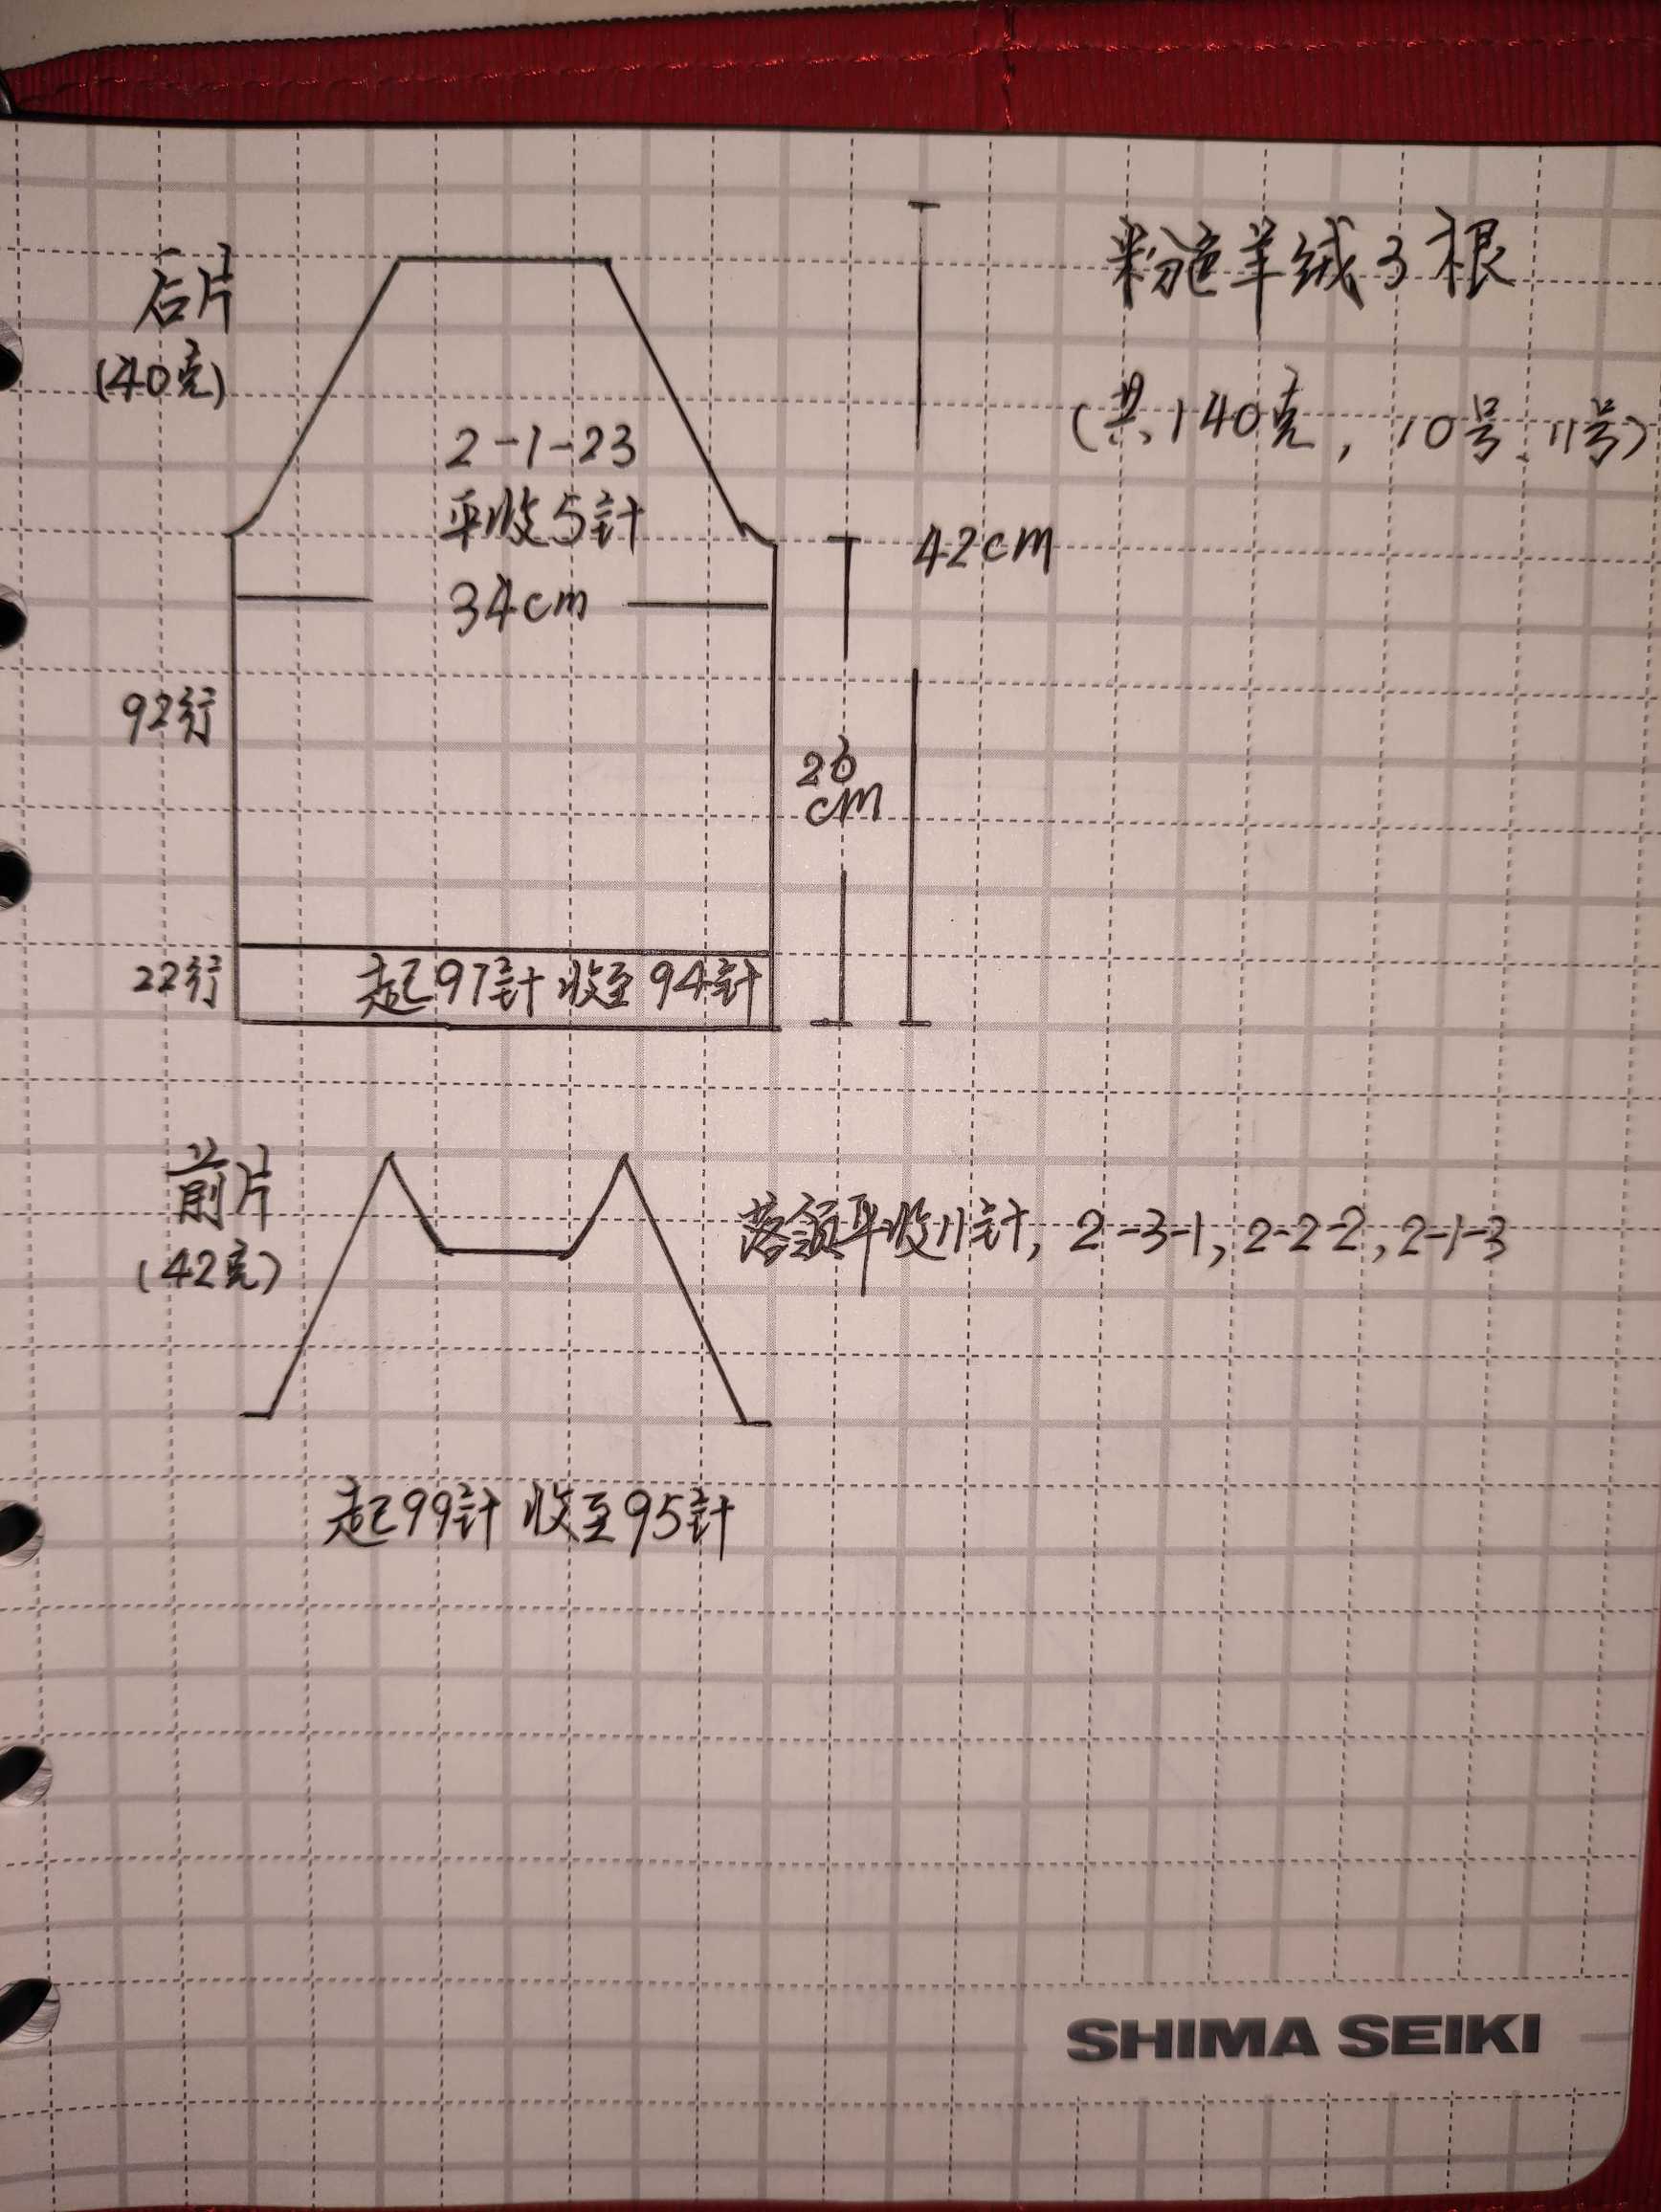 后片
(40克)
粉色羊绒3根
(共140克, 10号、11号)
2-1-23
平收5针
34cm
42cm
92行
26
cm
22行
起97针 收至94针
前片
(42克)
落领平收11针, 2-3-1, 2-2-2, 2-1-3
起99针 收至95针
SHIMA SEIKI